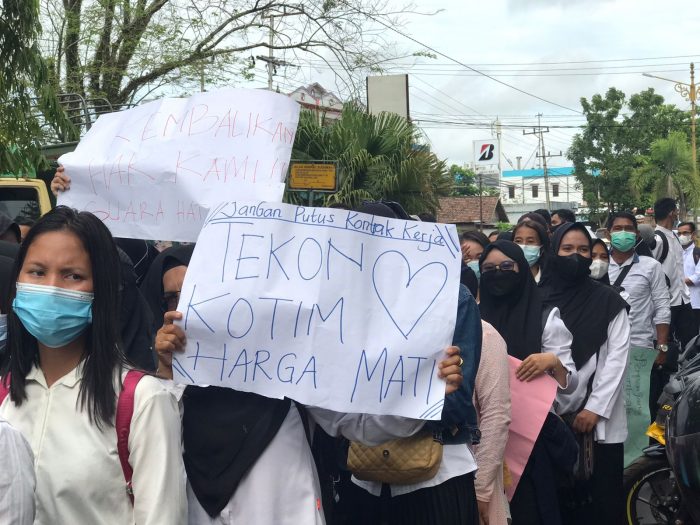 KEMBALIKAN
HAK KAMI !!
SUARA HA
Jangan Putus Kontrak Kerja
TEKON
KOTIM
HARGA MATI